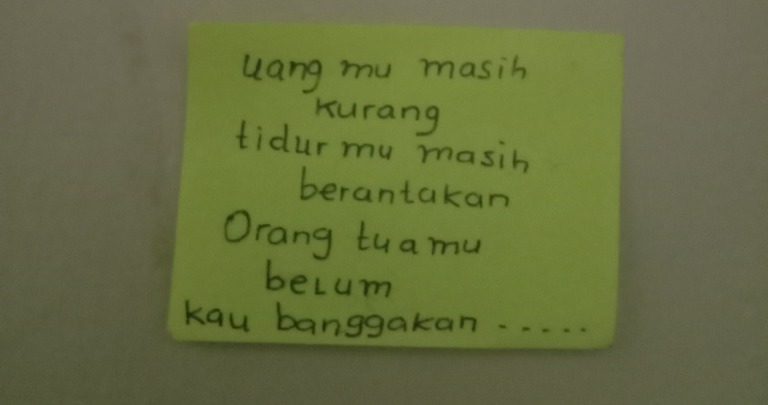 uang mu masih
kurang
tidur mu masih
berantakan
Orang tuamu
belum
kau banggakan .....